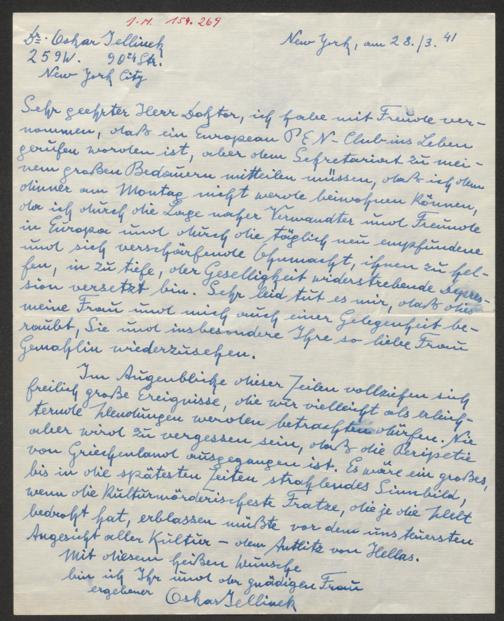 I.N. 159.269
Dr. Oskar Jellinek
259 W. 90th Str.
New York City
New York, am 28./3. 41
Sehr geehrter Herr Doktor, ich habe mit Freude ver-
nommen, daß ein European PEN-Club ins Leben
gerufen worden ist, aber dem Sekretariat zu mei-
nem großen Bedauern mitteilen müssen, daß ich dem
dinner am Montag nicht werde beiwohnen können,
da ich durch die Lage naher Verwandter und Freunde
in Europa und durch die täglich neu empfundene
und sich verschärfende Ohnmacht, ihnen zu hel-
fen, in zu tiefe, der Geselligkeit widerstrebende Depres-
sion versetzt bin. Sehr leid tut es mir, daß dies
meine Frau und mich auch einer Gelegenheit be-
raubt, Sie und insbesondere Ihre so liebe Frau
Gemahlin wiederzusehen.
Im Augenblicke dieser Zeilen vollziehen sich
freilich große Ereignisse, die wir vielleicht als
Wendungen werden betrachten dürfen. Nie
aber wird zu vergessen sein, daß die Peripetie
von Griechenland ausgegangen ist. Es wäre ein großes,
bis in die spätesten Zeiten strahlendes Sinnbild,
wenn die kulturmörderischeste Fratze, die je die Welt
bedroht hat, erblassen müßte vor dem uns teuersten
Angesicht aller Kultur – dem Antlitz von Hellas.
Mit diesem heißen Wunsche
bin ich Ihr und der gnädigen Frau
ergebener Oskar Jellinek